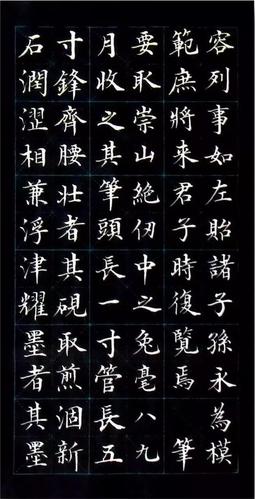 容列事如左貽諸子孫永為模
範庶將來君子時復覽焉　筆
要取崇山絕仞中之兔毫八九
月收之其筆頭長一寸管長五
寸鋒齊腰壯者其硯取煎涸新
石潤澀相兼浮津耀墨者其墨